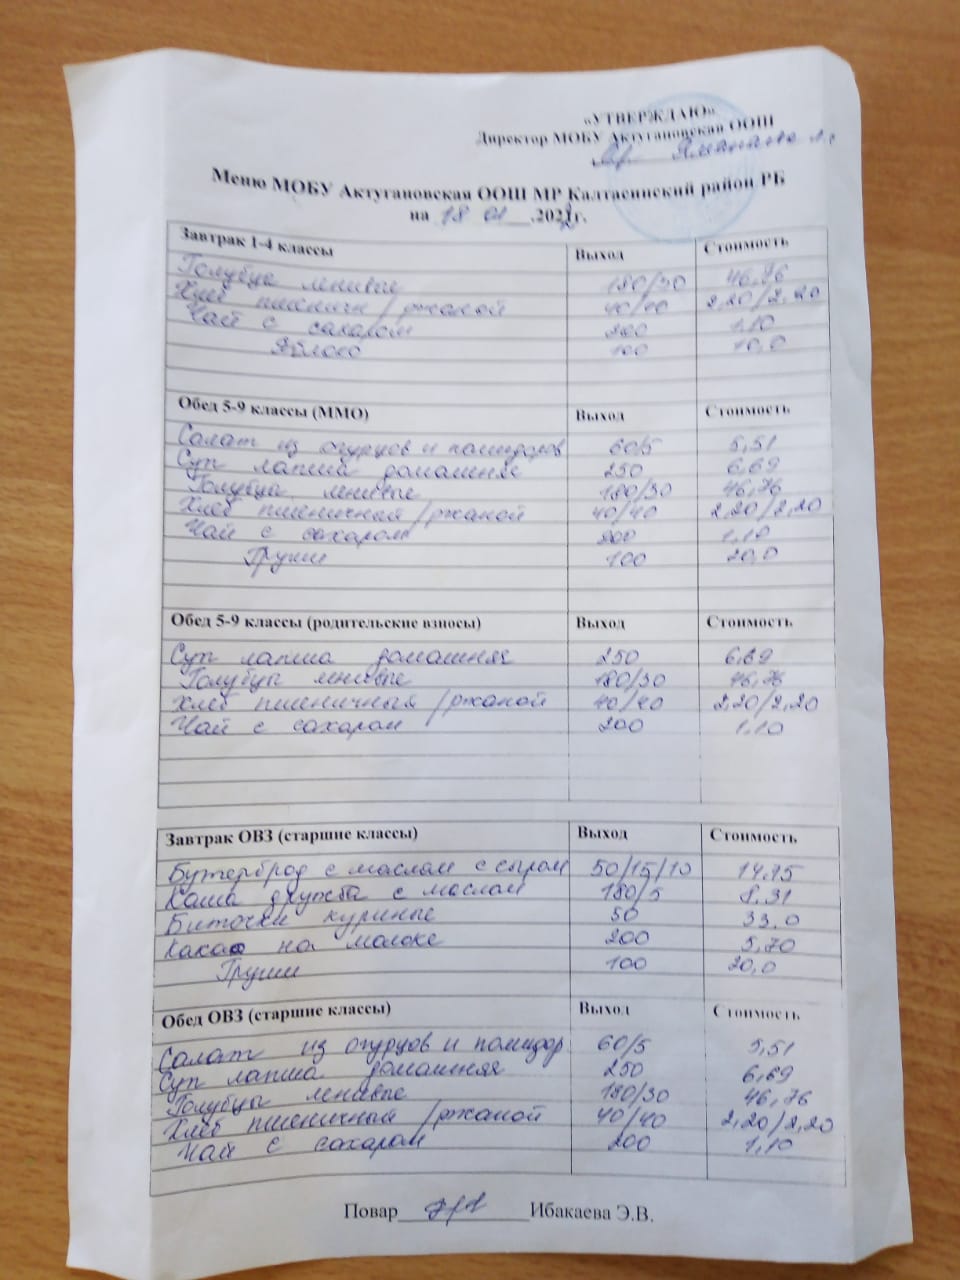 «УТВЕРЖДАЮ»
Директор МОБУ Актугановская ООШ
Меню МОБУ Актугановская ООШ МР Калтасинский район РБ
на 18 01 .2022г.
Завтрак 1-4 классы Выход Стоимость
Голубцы ленивые 180/30 46,76
Хлеб пшеничн/ржаной 40/40 2,20/2,20
Чай с сахаром 200 1,10
Яблоко 100 10,0
Обед 5-9 классы (ММО) Выход Стоимость
Салат из огурцов и помидоров 60/5 5,51
Суп лапша домашняя 250 6,69
Голубцы ленивые 180/30 46,76
Хлеб пшеничный/ржаной 40/40 2,20/2,20
Чай с сахаром 200 1,10
Груши 100 20,0
Обед 5-9 классы (родительские взносы) Выход Стоимость
Суп лапша домашняя 250 6,69
Голубцы ленивые 180/30 46,76
Хлеб пшеничный/ржаной 40/40 2,20/2,20
Чай с сахаром 200 1,10
Завтрак ОВЗ (старшие классы) Выход Стоимость
Бутерброд с маслом с сыром 50/15/10 14,75
Каша дружба с маслом 180/5 8,31
Биточки куриные 50 33,0
Какао на молоке 200 5,70
Груши 100 20,0
Обед ОВЗ (старшие классы) Выход Стоимость
Салат из огурцов и помидор 60/5 5,51
Суп лапша домашняя 250 6,69
Голубцы ленивые 180/30 46,76
Хлеб пшеничный/ржаной 40/40 2,20/2,20
Чай с сахаром 200 1,10
Повар Ибакаева Э.В.